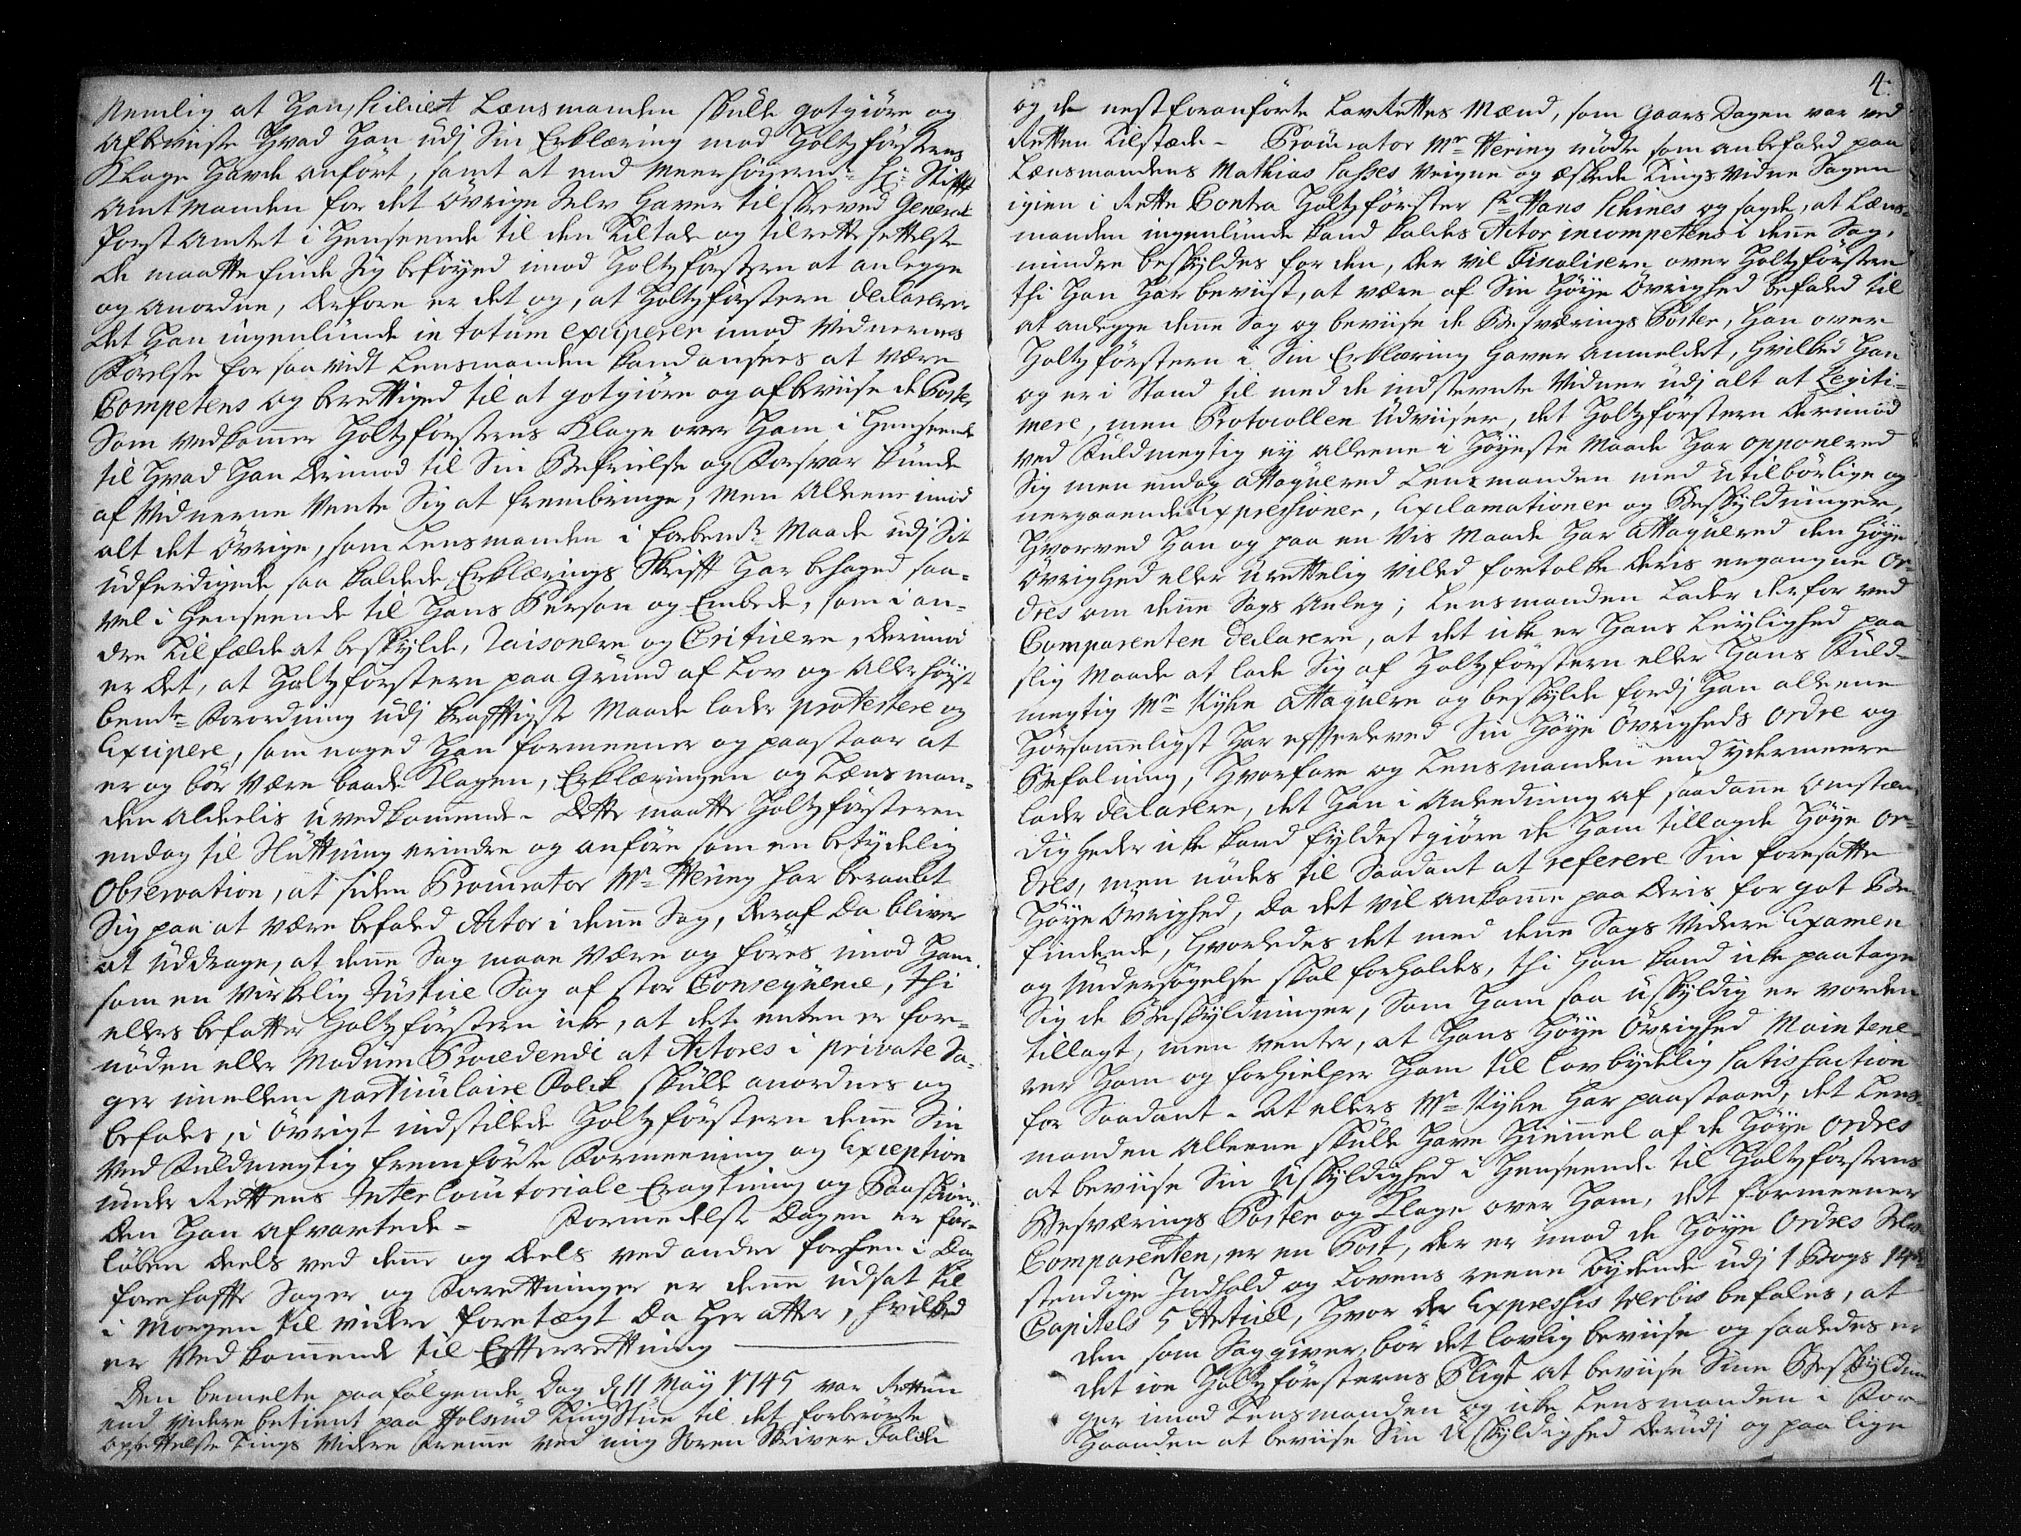 Nemlig at Han, scilicet Lænsmanden skulle gotgiøre og
Afbeviiste Hvad Han udj Sin Erklæring mod Holtzförsterns
Klage Hafde anfört, samt at end Meerhøigemte Hr: Stifft
Amtmanden for det Øvrige Selv Haver tilskreved General
Forst Amtet i Henseende til den Tiltale og tilrette settelse
De maatte finde Sig beföyed imod Holtzförstern at anlegge
og Anordne, derfore er det og, at Holtzförstern Declarerer
Det Han ingenlunde in totum exciperer imod Vidnernes
Førelse for saa vidt Lensmanden kand ansees at være
Competens og berettiged til at gotgiøre og afbeviise de Poster
Som vedkommer Holtzförsterns Klage over Ham i Henseende
til Hvad Han derimod til Sin Befrielse og Forsvar kunde
af Vidnerne Vente Sig at frembringe, Men Alleene imod
alt det Øvrige, som Lensmanden i forbemte Maade udj Sit
udferdigede saa kaldede Erklærings Skrift Har behaged saa-
vel i Henseende til Hans Person og Embede, som i an-
dre Tilfælde at beskylde, Raisonere og Criticere, derimod
er det, at Holtzförstern paa Grund af Lov og Allerhöyst
bemte Forordning udj krafftigste Maade lader protestere og
Excipere, som noged Han formeener og paastaar at
er og bör Være baade Klagen, Erklæringen og Lensman-
den Aldelis uvedkommende. Dette maatte Holtzförsteren
endog til Sluttning erindre og anföre som en betydelig
Observation, at siden Procurator Mr Hering har beraabt
Sig paa at være befaled Actor i denne Sag, deraf da bliver
at uddrage, at denne Sag maae Være og föres imod Ham
som en Virkelig Justice Sag af stor Conseqvence, thi
ellers befatter Holtzförstern icke, at det enten er for-
nöden eller Modum Procedendi at Actores i private Sa-
ger imellem particulaire Folck skulle anordnes og
befales, i Øvrigt indstillede Holtzförstern denne Sin
Ved Fuldmegtig fremförte Formeening og Exception
under Rettens Interlocutoriale Eragtning og Paaskiön,
den Han afvartede. Formedelst Dagen er for-
löben deels ved denne og deels ved andre forhen i Dag
forehaffte Sager og Forrettninger er denne udsat til
i Morgen til videre foretægt da Her atter, hvilked
er Vedkommende til Efterrettning
Den bemelte paafølgende Dag d 11 May 1745 var Retten
end videre betient paa Holsund TingStue til det forberörte
opsettelse Tings Vidne Fremme ved mig Soren Skriver Falck
4.
og de nestforanförte LavRettes Mænd, som Gaars Dagen var ved
Retten Tilstæde. Procurator Mr Hering mödte som anbefaled paa
Lænsmandens Mathias Sasses Veigne og æskede Tings Vidne Sagen
igien i Rette Contra Holtzförster Sr Hans Schines og sagde, at Læns-
manden ingenlunde kand kaldes Actor incompetens i denne Sag,
mindre beskyldes for den, der vil Fiscalisere over Holtzförstern
thi Han Har beviist, at være af Sin Höye Øvrighed befaled til
at anlegge denne Sag og beviise de Besværings Poster, Han over
Holtzförstern i Sin Erklæring Haver Anmeldet, Hvilked Han
og er i Stand til med de indstevnte Vidner udj alt at Legiti-
mere, men Protocollen udviiser, det Holtzförstern derimod
ved Fuldmegtig ey alleene i Höyeste Maade Har opponered
Sig men endog attaqvered Lensmanden med utilbörlige og
nergaaende Expressioner, Exclamationer og Beskyldninger,
Hvorved Han og paa en Vis Maade Har attaqvered den Höye
Øvrighed eller urettelig Villed fortolke deris ergangne Or-
dres om denne Sags Anleg; Lensmanden Lader derfor ved
Comparenten declarere, at det icke er Hans Leylighed paa
slig Maade at lade Sig af Holtzförstern eller Hans Fuld-
megtig Mr Kyhn attaqvere og beskylde fordj Han alleene
Hörsommeligst Har efterleved Sin Höye Øvrigheds Ordre og
Befalning, Hvorfore og Lensmanden end ydermeere
lader declarere, det Han i Anledning af saadanne Omstæn-
digheder icke kand fyldestgiøre de Ham tillagde Höye Or-
dres, men nödes til Saadant at referere Sin foresatte
Höye Øvrighed, da det vil ankomme paa deris for got Be-
findende, Hvorledes det med denne Sags Videre Examen
og Undersøgelse skal forholdes, thi Han kand icke paatage
Sig de Beskyldninger, Som Ham saa uskyldig er vorden
tillagt, men venter, at Hans Höye Øvrighed Maintene-
rer Ham og forhielper Ham til Lovbydelig Satisfaction
for Saadant. At ellers Mr Kyhn Har paastaaed, det Lens-
manden Alleene skulle Have Hiemmel af de Höye Ordres
at beviise Sin Uskyldighed i Henseende til Holtzförsterns
Besværings Poster og Klage over Ham, det formeener
Comparenten, er en Post, der er imod de Höye Ordres Selv-
stendige Indhold og Lovens reene Bydende udj 1 Bogs 14de
Capitels 5 Articul, Hvor der Expressis Verbis befales, at
den som Saggiver, bör det lovlig beviise og saaledes er
det joe Holtzförsterns Pligt at beviise Sine Beskyldnin-
ger imod Lensmanden og icke Lensmanden i For-
Haanden at beviise Sin Uskyldighed derudj og paa lige